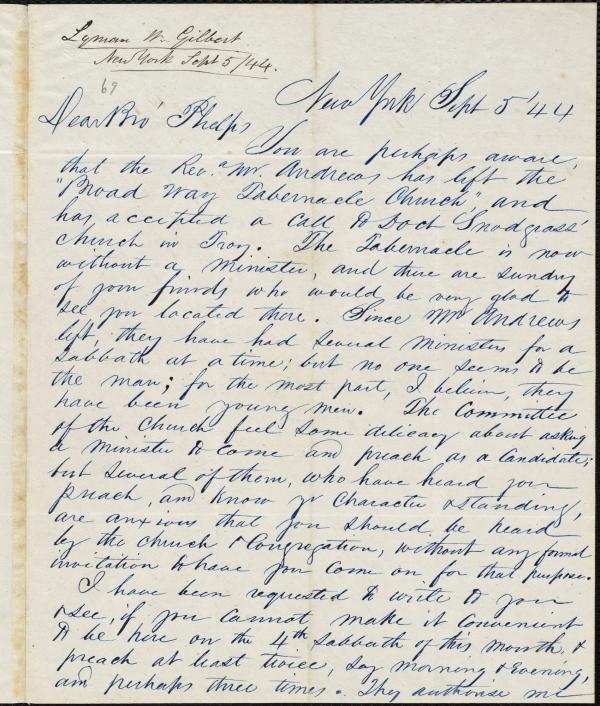 Lyman W. Gilbert
New York Sept 5/44.
69
New York Sept 5 '44
Dear Bro' Phelps
You are perhaps aware,
that the Rev. Mr. Andrews has left the
"Broad Way Tabernacle Church", and
has accepted a call to Doct Snodgrass'
church in Troy. The Tabernacle is now
without a minister, and there are sundry
of your friends who would be very glad to
see you located there. Since Mr Andrews
left, they have had several ministers for a
Sabbath at a time; but no one seems to be
the man; for the most part, I believe, they
have been young men. The Committee
of the Church feel some dilicacy about asking
a minister to come and preach as a Candidate;
but several of them, who have heard you
preach, and know yr character & standing,
are anxious that you should be heard
by the church & Congregation, without any formal
invitation to have you come on for that purpose.
I have been requested to write to you
& see, if you cannot make it convenient
to be here on the 4th Sabbath of this month, &
preach at least twice, say morning & Evening,
and perhaps three times. They authorise me